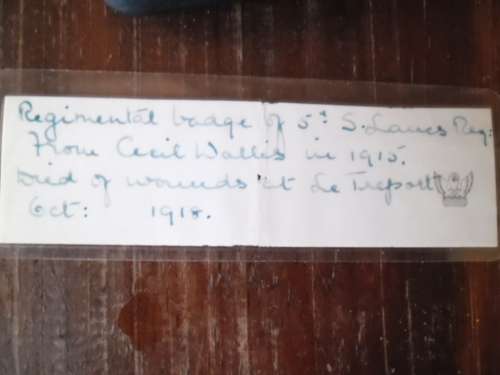 Regimental badge of 5th S. Lancs Reg:
From Cecil Wallis in 1915.
Died of wounds at Le Treport
Oct: 1918.